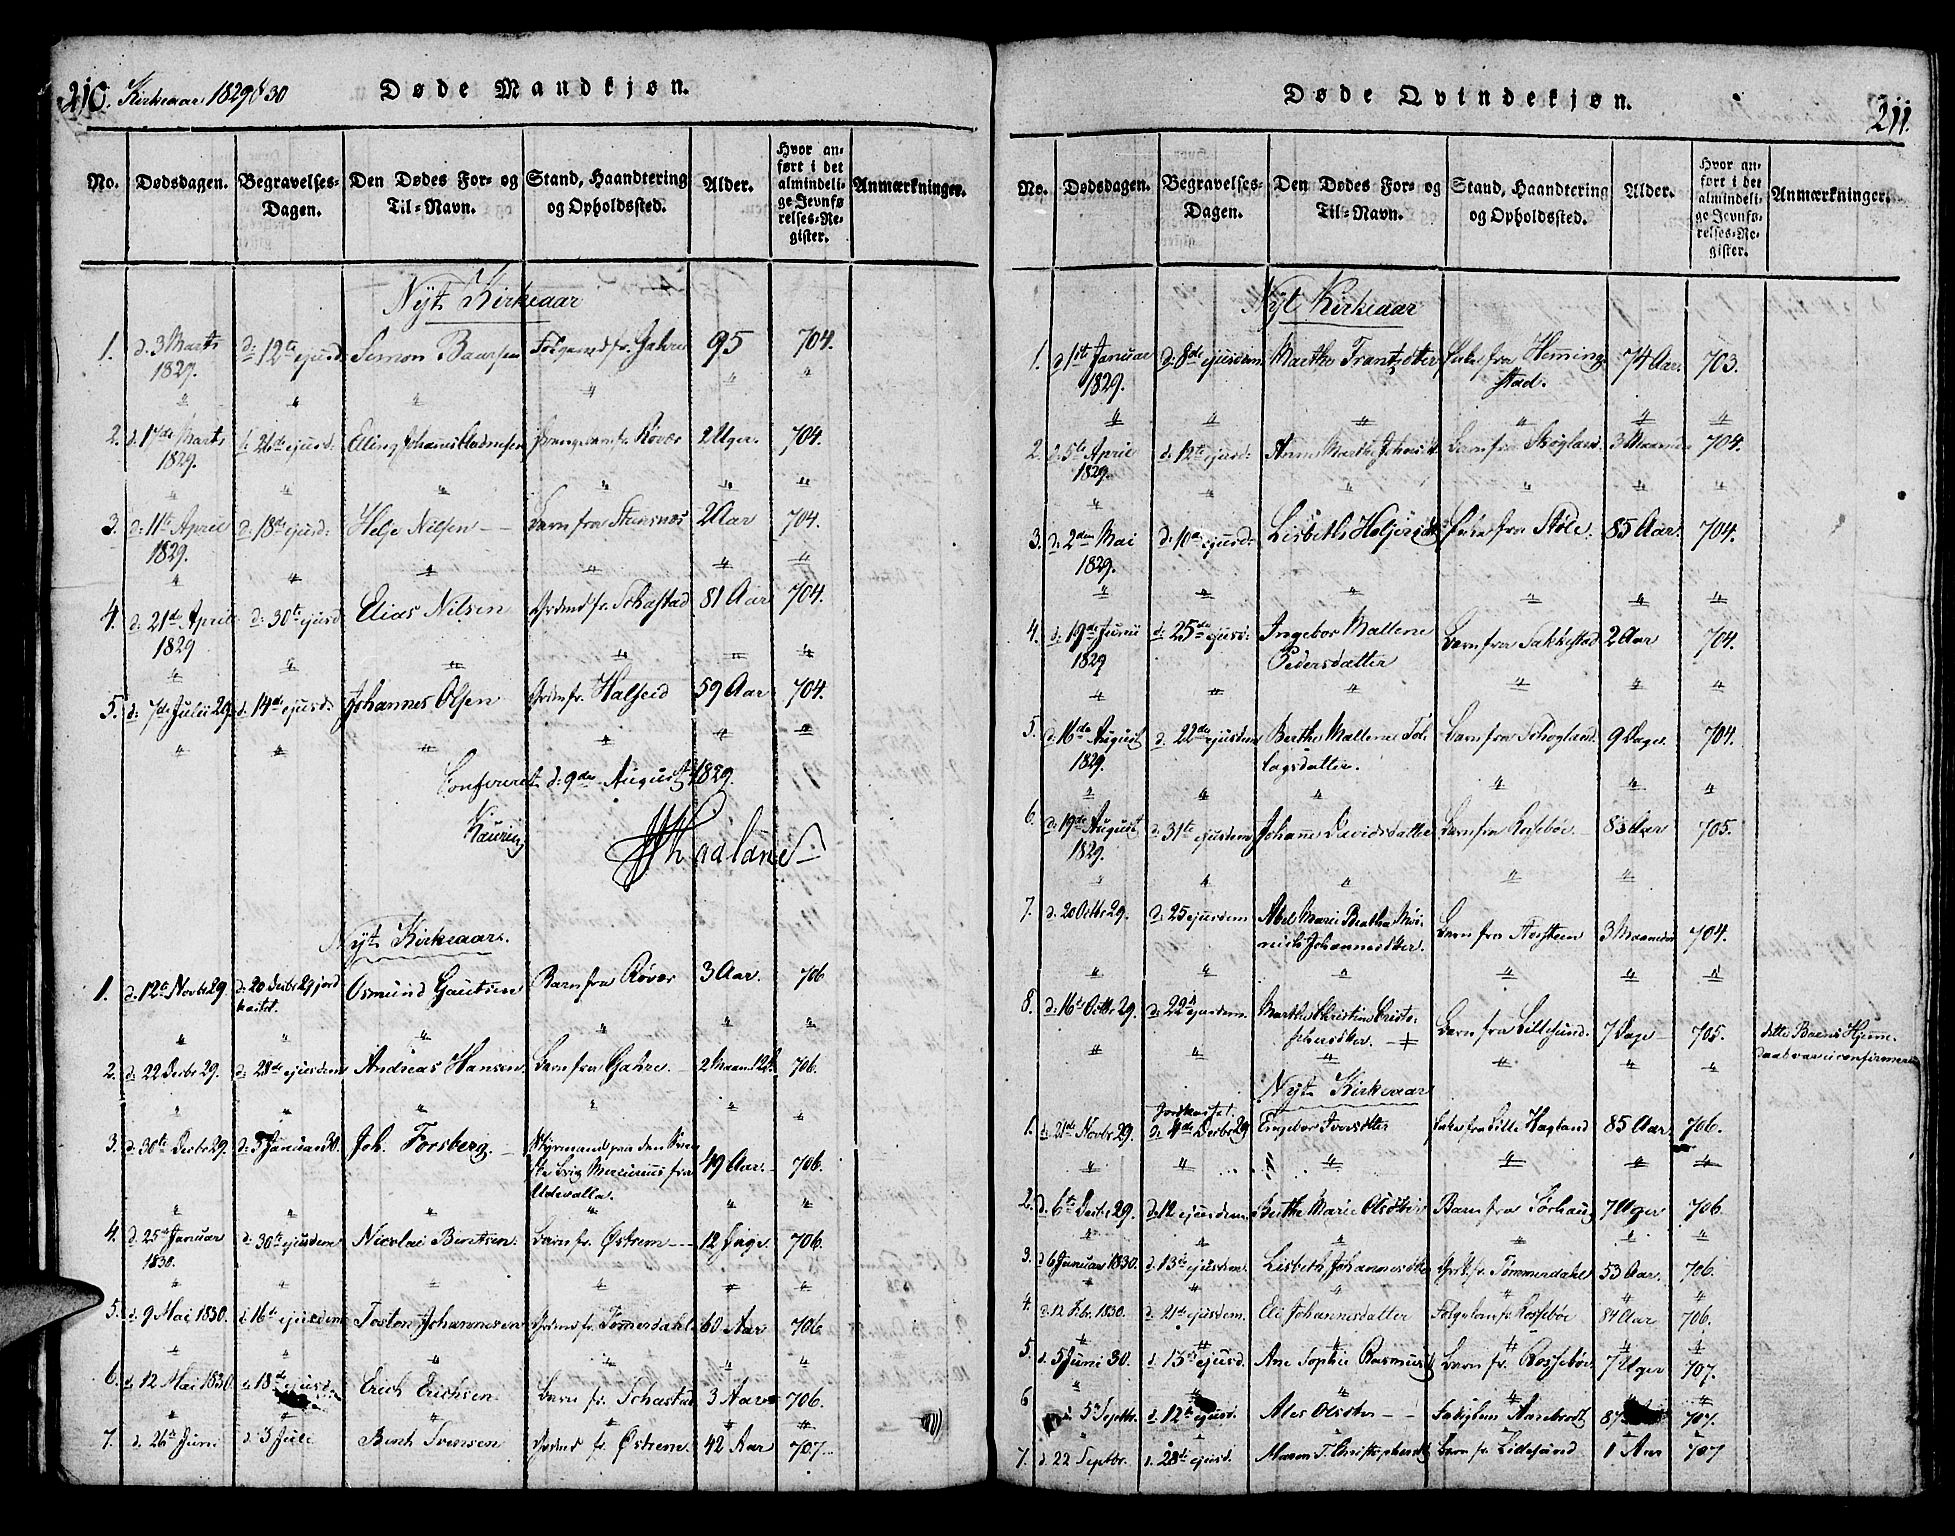 210. Kirkeaar 1829 & 30
Døde Mandkjøn.
No. Dødsdagen. Begravelses-Dagen. Den Dødes For- og Til-Navn. Stand, Haandtering og Opholdssted. Alder. Hvor anført i det almindelige Jevnførelses-Register. Anmærkninger.
Nyt Kirkeaar
1. d. 3 Marts 1829. d. 12te ejusd: Simon Baarsen fr. Gahre 95 704.
2. d. Marts 1829. d. 26de ejusd: Elling Johannes fr. Røvær 2 Uger. 704.
3. d: 11te April 1829. d: 18de ejusd: Helje Nilsen Barn fra Steensnæs 2 Aar 704.
4. d: 21de April 1829 d: 30te ejusd Elias Nilsen Grdmd fr. Schastad 81 Aar 704.
5. d: 7de Julii 29. d: 14de ejusd: Johannes Olsen fr. Halseid 59 Aar 704.
Confereret d: 9de August 1829.
Nyt Kirkeaar.
1. d. 12te Novbr 29. d. 20 Decbr 29 jordkastet. Osmund Gautsen Barn fra Røvær 3 Aar. 706
2. d: 22 Decbr 29. d: 28de ejusdem Andreas Hansen Barn fra Gahre 2 Maan 706.
3. d: 30te Decbr 29. d: 5 Januar 30. Joh. Forsberg. Styrmand paa den Svenske Brig Mercurius fra Udevalla. 49 Aar. 706.
4. d. 25de Januar 1830. d: 30te ejusdem Nicolai Bentsen. Barn fr. Østrem 12 706.
5. d. 9 Mai 1830. d. 16de ejusdem Tosten Johannesen Grdmd fr. Tømmerdahl 60 Aar 706.
6. d. 12 Mai 1830 d. 18de ejusd. Erich Erichsen Barn fr. Schastad 3 Aar 706.
7. d. 26de Juni d. 3 Juli Grdmd fr. Østrem 42 Aar 707.
Døde Qvindekjøn.
211.
No. Dødsdagen. Begravelses-Dagen. Den Dødes For- og Til-Navn. Stand, Haandtering og Opholdssted. Alder. Hvor anført i det almindelige Jevnførelses-Register. Anmærkninger.
Nyt Kirkeaar
1. d. 1ste Januar 1829. d. 8de ejusdem Martha Frantzdtter fra Hemingstad. 74 Aar. 703.
2. d. 5te April 1829. d. 12te ejusd: Anna Martha Barn fra Skogland 3 Maaneder 704.
3. d. 2den Mai 1829. d. 10de ejusd: Lisbeth fra Støle. 85 Aar. 704.
4. d. 19de Junii 1829 d: 25de ejusd: Ingebor Mallene Pedersdatter Barn fra Sakkestad 2 Aar 704.
5. d. 16de August 1829. d. 22de ejusdem Berthe Mallene Tollagsdatter. Barn fra Schogland 9 Dage. 704.
6. d: 19de August 1829. d: 31te ejusdem Johanne Davidsdatter Barn fra Rossebøe 8 Aar 705.
7. d. 20 Octbr 29. d. 25 ejusdem Abel Marie Bertha Barn fra 3 Maaneder 704.
8. d: 16de Octbr 29. d: 22de ejusdem. Marthe Christine Christophersdtter. Barn fra Lillesund. 7 Dage 705.
Nyt Kirkeaar
1. d: 21de Novbr 29. Jordkastet. d: 4de Decbr 29 Ingebor Iversdtter fra Lille Hagland 85 Aar 706.
2. d. 6te Decbr 29. d. 12 ejusdem. Berthe Marie Olsdtter Barn fra Sørhaug 7 Uger 706.
3. d 6 Januar 1830. d: 13de ejusdem. Lisbeth Johannesdtter fr. Tømmerdahl 53 Aar. 706.
4. d. 12 Febr. 1830. d. 21de ejusdem. Eli Johannesdatter fr. Rossebøe 84 Aar 706.
5. d. 5 Juni 30. d. 13de ejusd. Ane Sophie Rasmusd Barn fr. Rossebøe 7 Uger 707.
6 d. 5te Septbr. d. 12te ejusd. Ales Olsdtter 87 707.
7. d. 22 Septbr. d. 28de ejusd. Maren T. Christophersd Barn fr. Lillesund 1 Aar 707